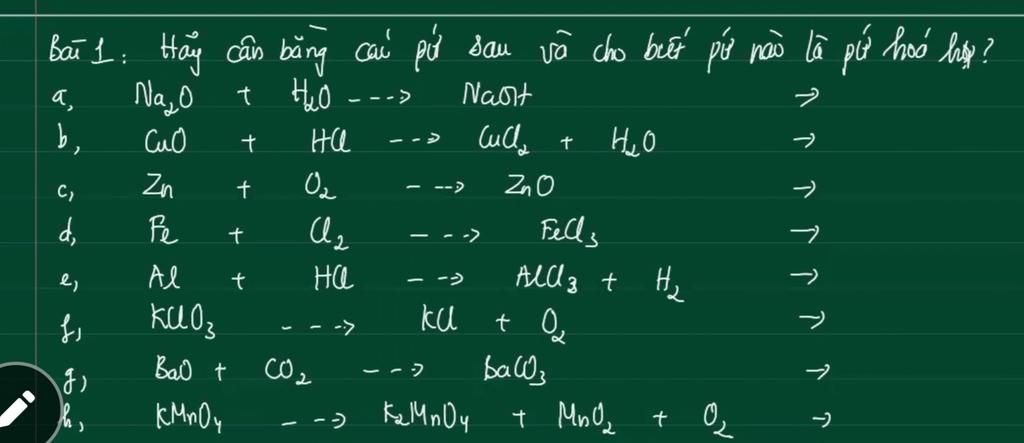 Bài 1: Hãy cân bằng các pứ sau và cho biết pứ nào là pứ hoá hợp?
a, Na₂O + H₂O ---> NaOH →
b, CuO + HCl ---> CuCl₂ + H₂O →
c, Zn + O₂ ---> ZnO →
d, Fe + Cl₂ ---> FeCl₃ →
e, Al + HCl ---> AlCl₃ + H₂ →
f, KClO₃ ---> KCl + O₂ →
g, BaO + CO₂ ---> BaCO₃ →
h, KMnO₄ ---> K₂MnO₄ + MnO₂ + O₂ →